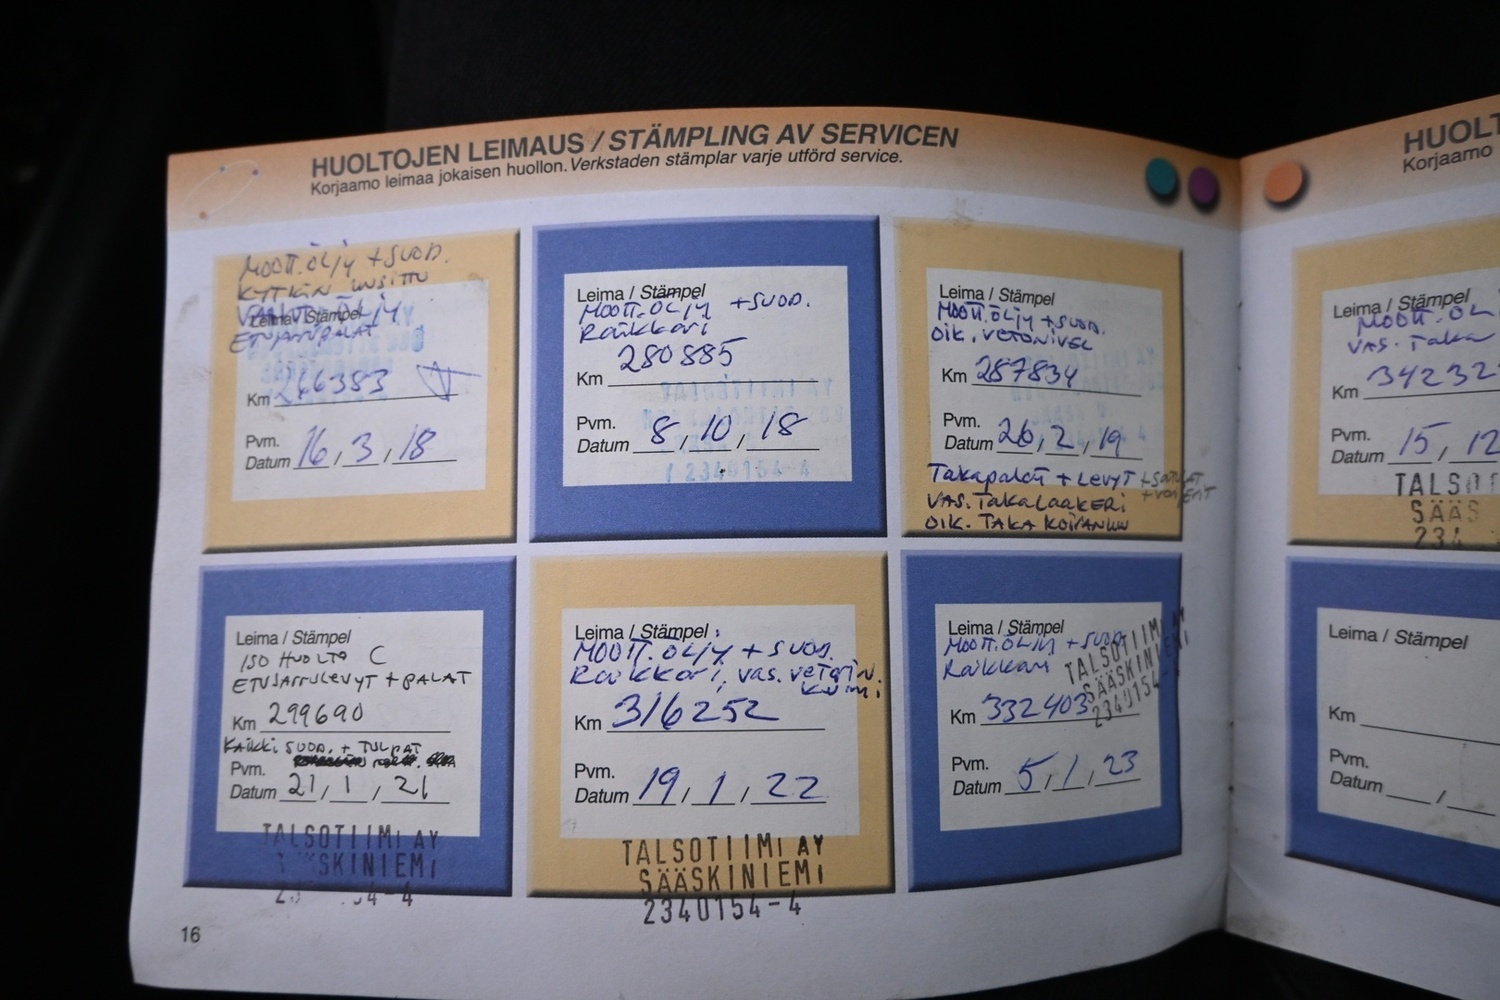 HUOLTOJEN LEIMAUS / STÄMPLING AV SERVICEN
Korjaamo leimaa jokaisen huollon. Verkstaden stämplar varje utförd service.
MOOTT.ÖLJY + SUOD.
KYTKIN UUSITTU
ÖLJY
Leima / Stämpel
ETUJARRUPALAT
Km 266383
Pvm.
Datum 16, 3, 18
Leima / Stämpel
MOOTT.ÖLJY + SUOD.
Raikkari
280885
Km
Pvm.
Datum 8, 10, 18
12340154-4
Leima / Stämpel
MOOTT.ÖLJY + SUOD.
OIK. VETONIVEL
Km 287834
Pvm.
Datum 26, 2, 19
Takapalat + Levyt + SATULAT
VAS. TakaLaakeri
OIK. TAKA KOIRANLUU
Leima / Stämpel
ISO HUOLTO C
ETUJARRULEVYT + PALAT
Km 299690
Kaikki SUOD. + TULPAT
Pvm.
Datum 21, 1, 21
TALSOTIIMI AY
SKINIEMI
4-4
Leima / Stämpel
MOOTT.ÖLJY + SUOD.
Raikkari, vas. vetoniv.
kumi
Km 316252
Pvm.
Datum 19, 1, 22
TALSOTIIMI AY
SÄÄSKINIEMI
2340154-4
Leima / Stämpel
MOOTT.ÖLJY + SUOD.
Raikkari
TALSOTIIMI AY
SÄÄSKINIEMI
2340154-
Km 332403
Pvm.
Datum 5, 1, 23
16
HUOLT
Korjaamo
Leima / Stämpel
MOOTT. ÖL
VAS. Taka
Km 34232
Pvm.
Datum 15, 12
TALSOT
SÄÄS
234
Leima / Stämpel
Km
Pvm.
Datum /